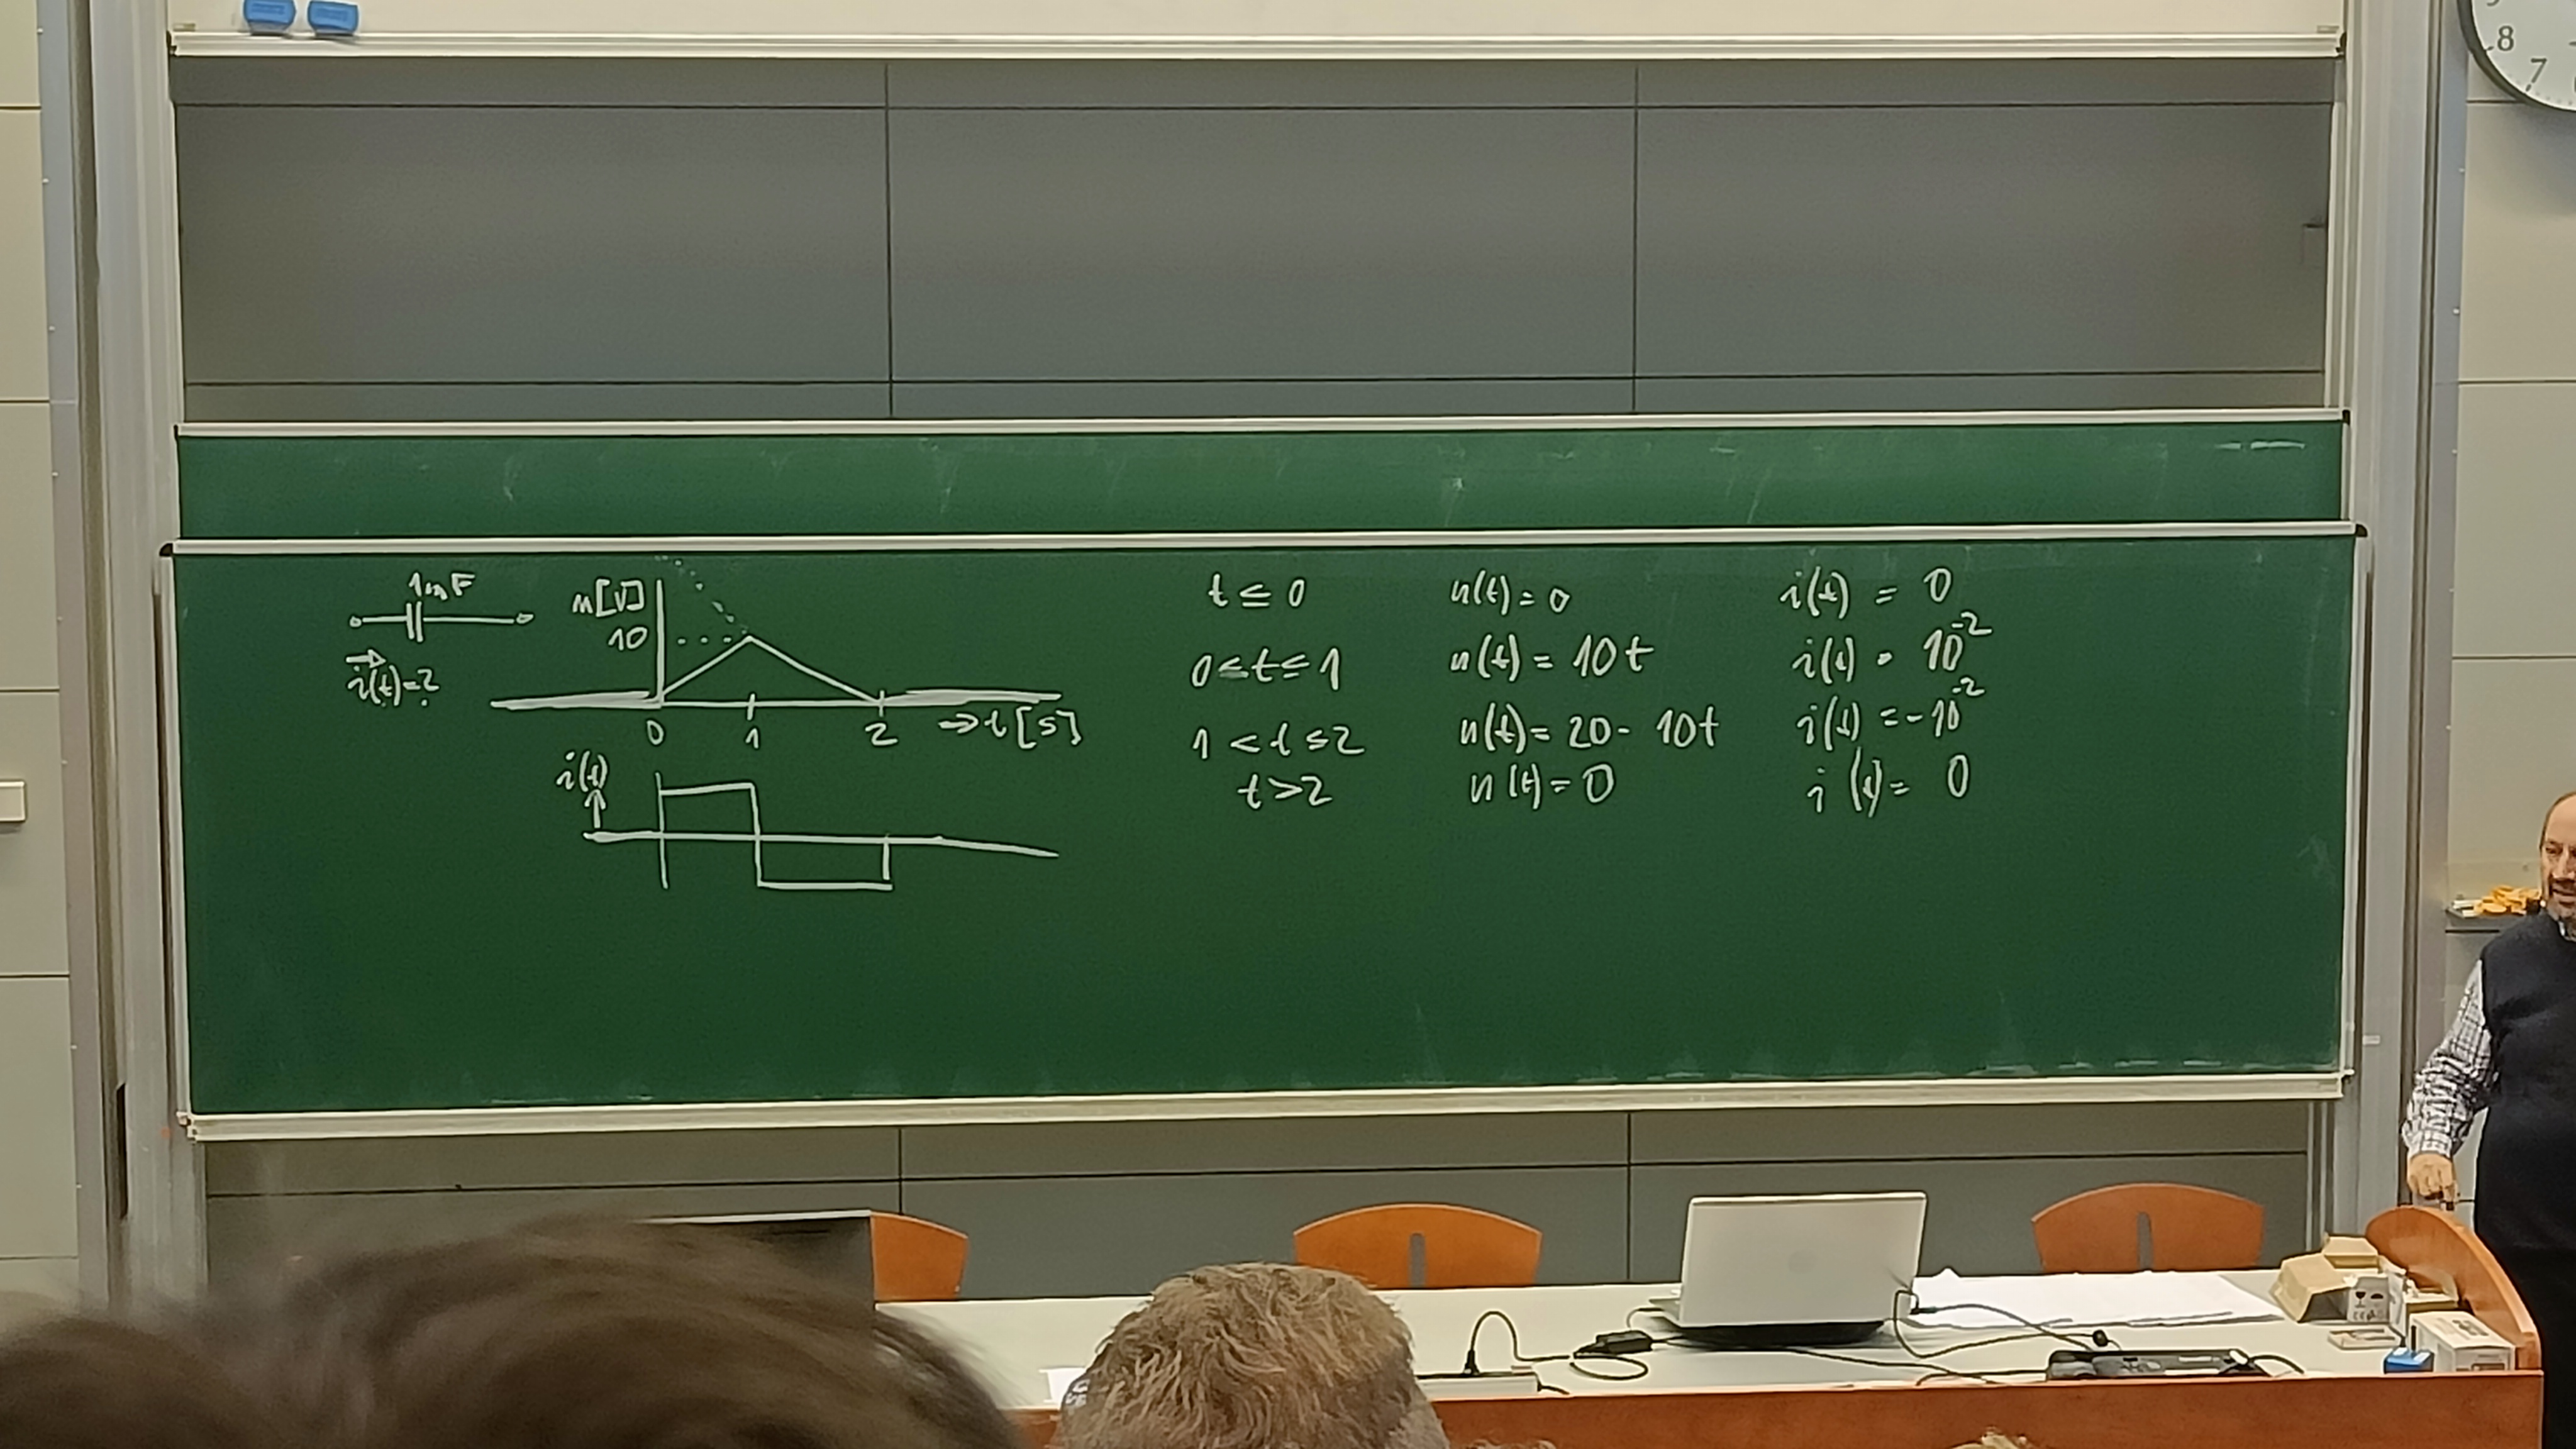 8
7
1mF
i(t)=?
u[V]
10
0 1 2 → t[s]
i(t)
t ≤ 0 u(t) = 0 i(t) = 0
0 ≤ t ≤ 1 u(t) = 10t i(t) = 10⁻²
1 < t ≤ 2 u(t) = 20 - 10t i(t) = -10⁻²
t > 2 u(t) = 0 i(t) = 0